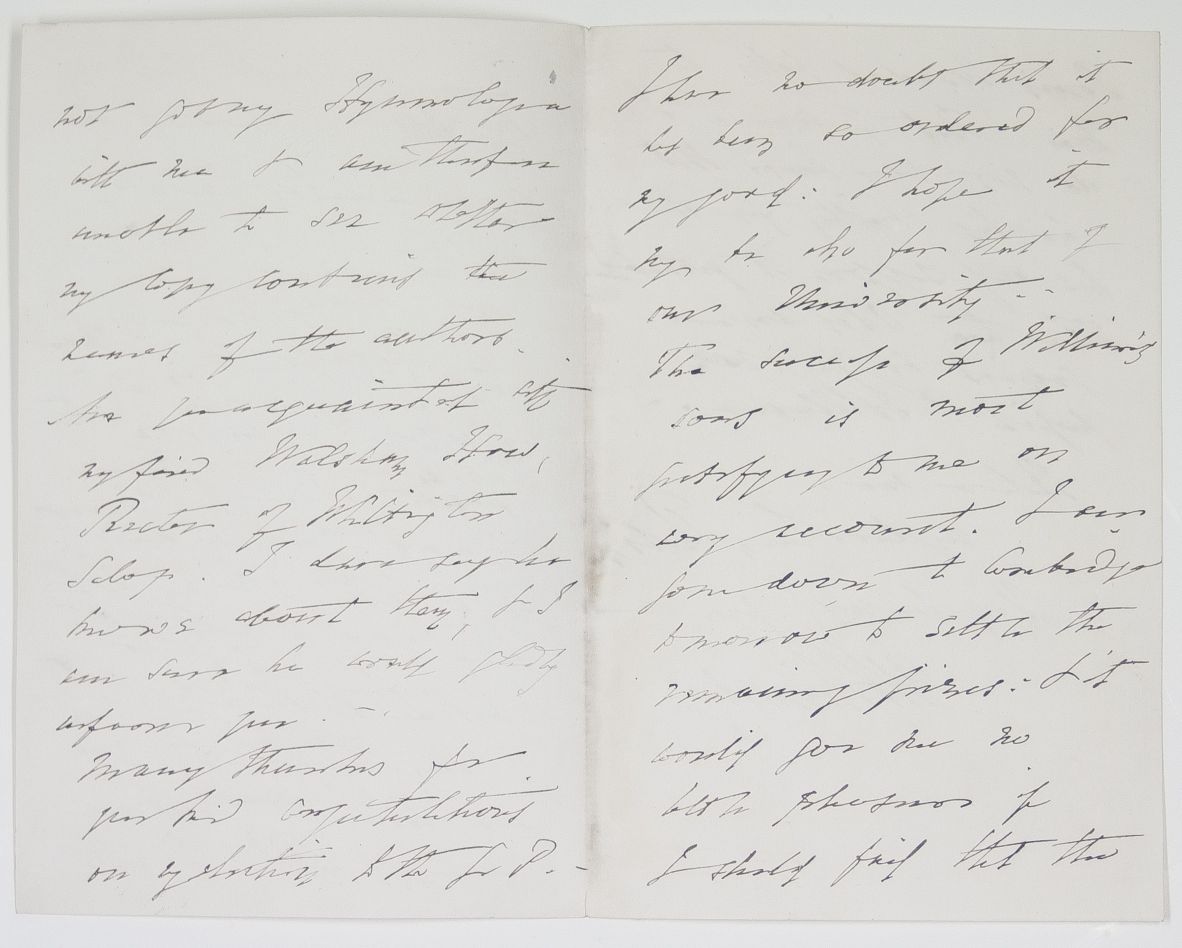 not got my Hymnologia
with me & am therefore
unable to see whether
my copy contains the
names of the authors.
Are you acquainted with
my friend Walsham How,
Rector of Whittington
Salop. I dare say he
knows about them, & I
am sure he would gladly
inform you. -
Many thanks for
your kind congratulations
on my election to the G. P. -
I have no doubt that it
has been so ordered for
my good: I hope it
may be also for that of
our University. -
The success of William's
sons is most
gratifying to me on
every account. I am
going down to Cambridge
tomorrow to settle the
remaining prizes: & it
would give me no
little pleasure if
I should find that the